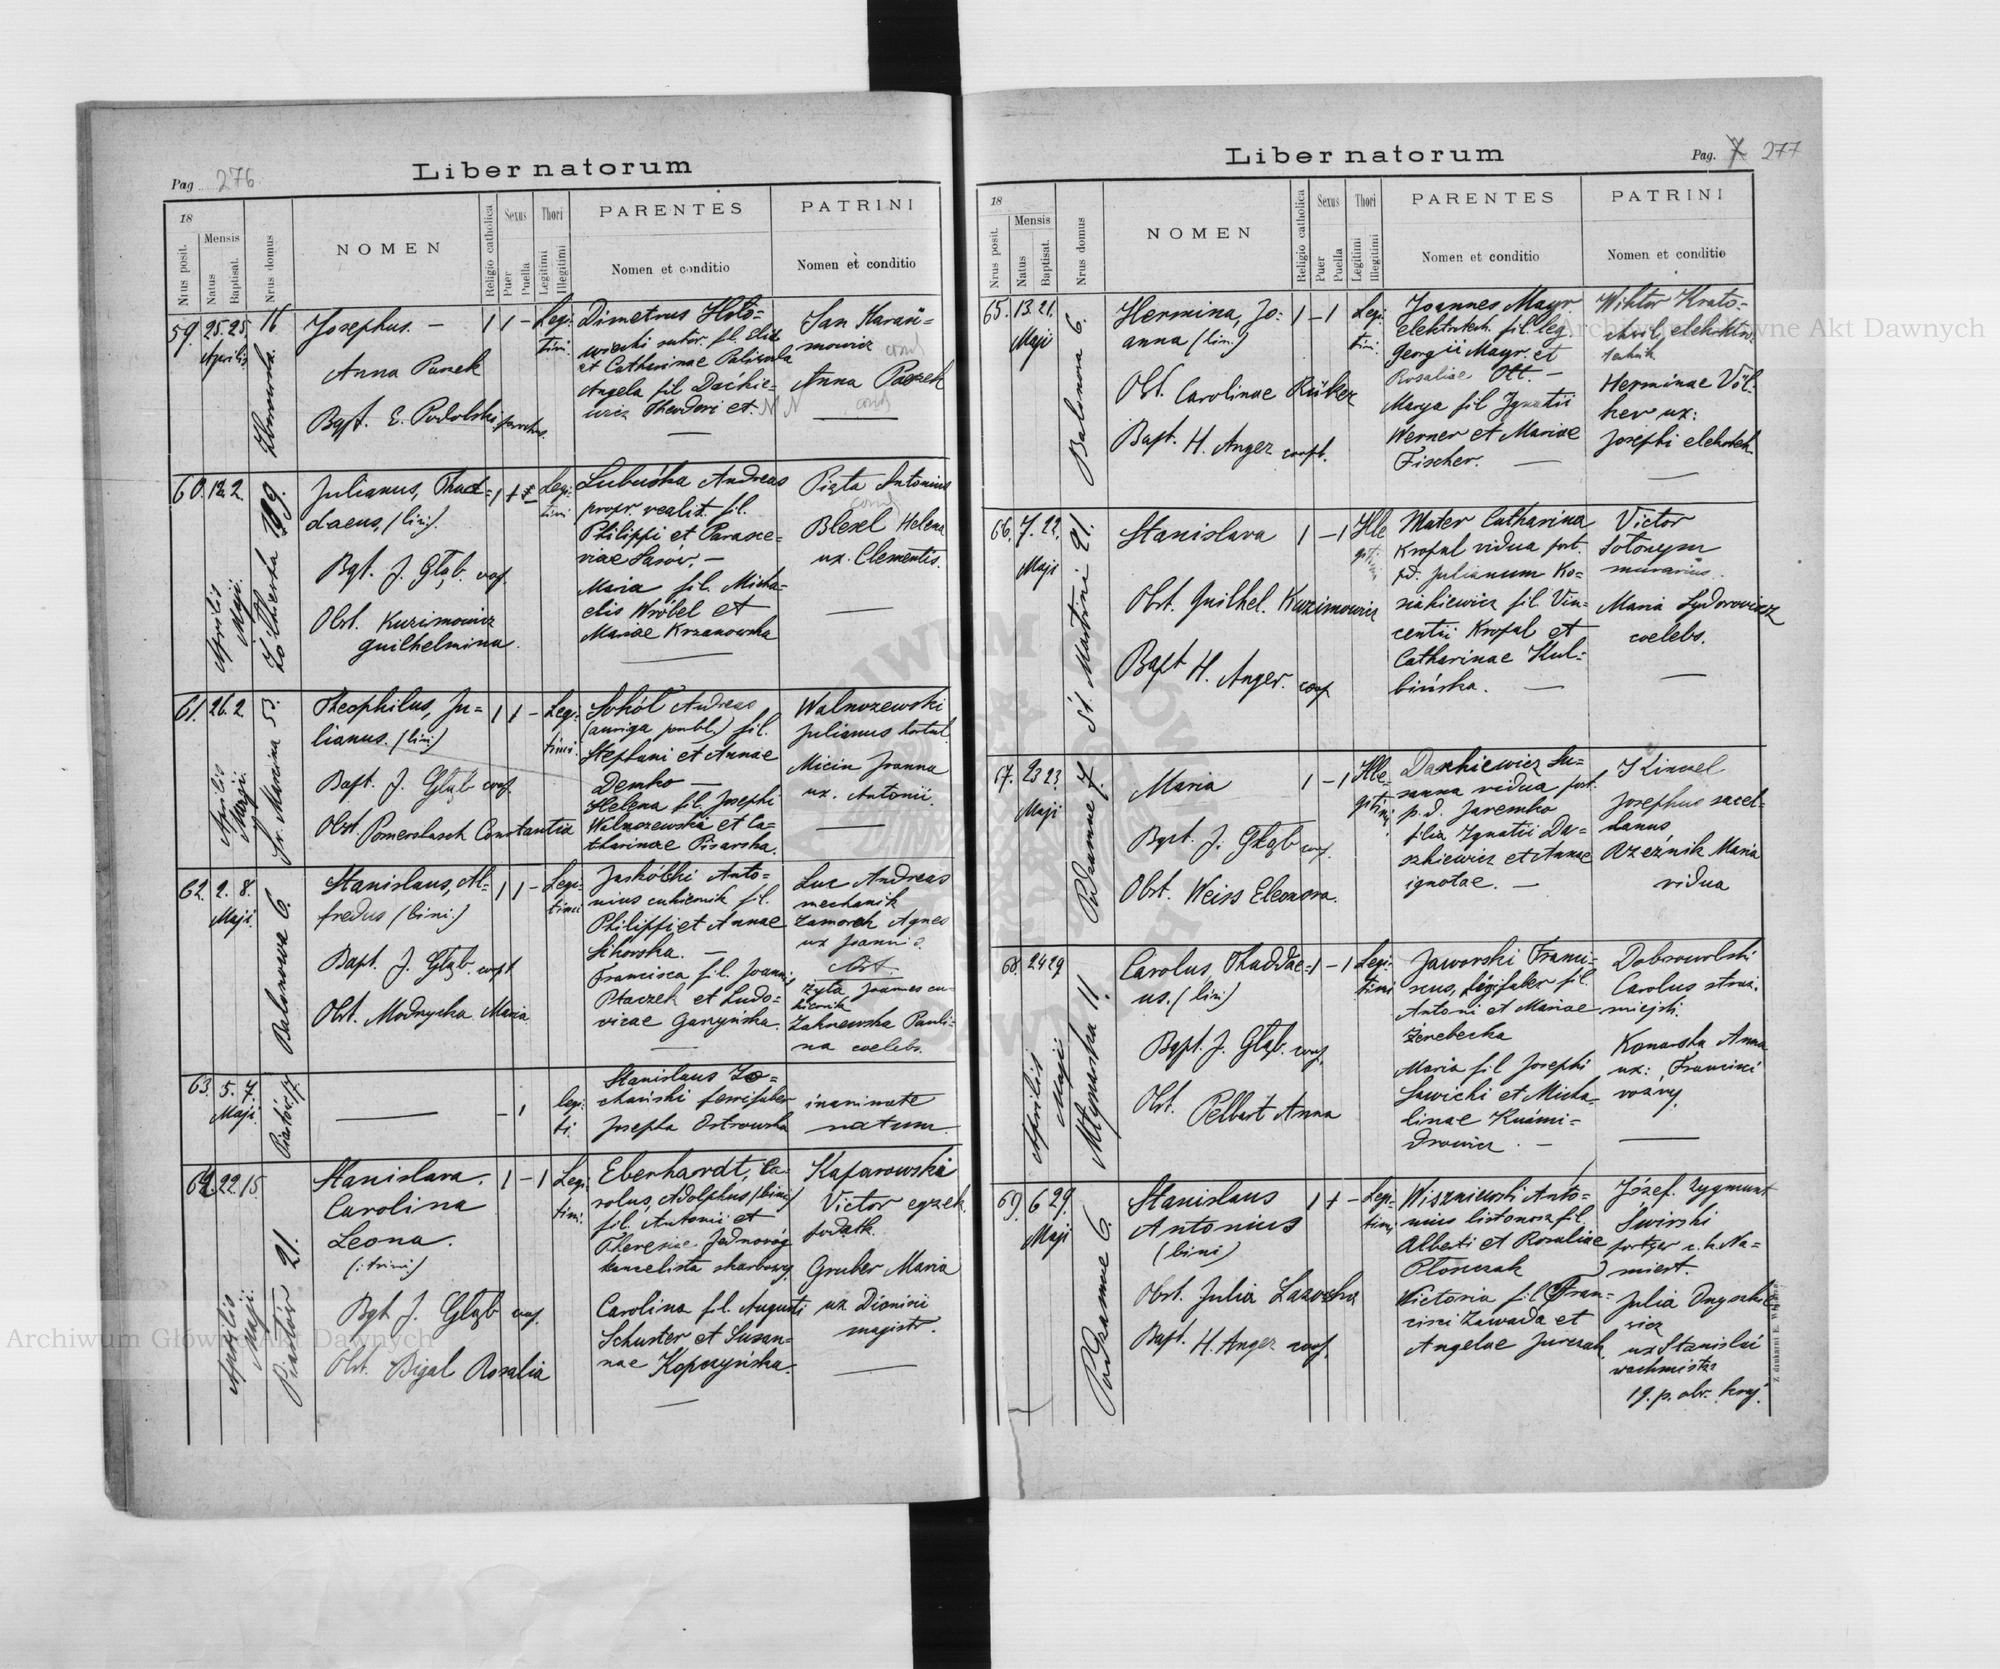 Pag 276
Liber natorum
18
Nrus posit.
Mensis
Natus
Baptisat.
Nrus domus
NOMEN
Religio catholica
Sexus
Puer
Puella
Thori
Legitimi
Illegitimi
PARENTES
Nomen et conditio
PATRINI
Nomen et conditio
59. 25. 25.
Aprilis
16
Josephus. —
Anna Panek
Bapt. E. Podolski, parochus.
1 1 -
Legi:
timi.
Dimetrus Hoło=
wiecki sutor. fil.
et Catharinae
Angela fil Daćkie=
wicz Theodori et N N
Jan Harań=
mowicz cond
Anna
cond
60. 12. 2.
Aprilis
Maji.
Żółkiewska 199.
Julianus, Thad=
daeus, (bini).
Bpt. J. Głąb. coop.
Obst. Kuzimowicz
Guilhelmina.
Legi:
timi.
Lubuśka Andreas
propr. realit. fil.
Philippi et Parasce=
viae —
Maria fil. Micha=
elis Wróbel et
Mariae Krzanowska
Pizta Antonius
cond
Blesel Helena
ux. Clementis.
61. 26. 2
Aprilis
Maji.
Św. Marcina 53.
Theophilus, Ju=
lianus. (bini)
Bapt. J. Głąb coop.
Obst. Pomerslasch Constantia
1 1 -
Legi:
timi.
Sokół Andreas
(auriga publ.) fil.
Stephani et Annae
Demko —
Helena fil. Josephi
Walnozewski et Ca=
tharinae Pisarska.
Walnozewski
Julianus
Micin Joanna
ux. Antonii.
62. 2. 8.
Maji.
Balonowa 6.
Stanislaus, Al=
fredus (bini.)
Bapt. J. Głąb. coop.
Obst. Modrycka Maria
1 1 -
Legi:
timi
Jaskólski Anto=
nius cukiernik fil.
Philippi et Annae
Sikorska. —
Francisca fil. Joannis
Ptaczek et Ludo=
vicae Garzyńska.
Luc Andreas
mechanik
Zamorek Agnes
ux Joannis.
Zyta Joannes cu=
kiernik
Zahnewska Pauli=
na coelebs.
63. 5. 7.
Maji.
Piastów 17
- 1
legi:
ti.
Stanislaus
ferrifaber
Josepha Ostrowska
inanimate
natum.
64. 22. 15.
Aprilis
Maji.
Piastów 21.
Stanislava.
Carolina
Leona.
(: trini :)
Bpt J. Głąb coop.
Obst. Bigal Rosalia
1 - 1
Legi:
timi.
Eberhardt, Ca=
rolus, Adolphus (bini)
fil. Antonii et
Theresiae
kancelista skarbowy.
Carolina fil. Augusti
Schuster et Susan=
nae Kopczyńska.
Kafarowski
Victor egzek.
podatk.
Gruber Maria
ux Dionisii
magistr.
Liber natorum
Pag. 277
18
Nrus posit.
Mensis
Natus
Baptisat.
Nrus domus
NOMEN
Religio catholica
Sexus
Puer
Puella
Thori
Legitimi
Illegitimi
PARENTES
Nomen et conditio
PATRINI
Nomen et conditio
65. 13. 21.
Maji
Balonowa 6.
Hermina, Jo=
anna (bini)
Obst. Carolinae Rüker
Bapt. H. Anger coopt.
1 - 1
Legi:
timi.
Joannes Mayr
elektrotech. fil. leg.
Georgii Mayr. et
Rosaliae Ott. —
Marya fil Ignatii
Werner et Mariae
Fischer. —
Wiktor Krato=
chvil, elektro=
technik
Herminae Völ=
ker ux:
Josephi elektrotech.
66. 7. 22.
Maji
Śt. Martini 91.
Stanislava
Obst. Guilhel. Kuzimowicz
Bapt H. Anger. coop.
1 - 1
Ille
giti:
Mater Catharina
Kropal vidua post.
p.d. Julianum Ko=
fil Vin=
centii Kropal et
Catharinae Kul=
bińska. —
Victor
murarius.
Maria Sydorowicz
coelebs.
67. 23 23.
Maji
Podzamcze 7.
Maria
Bapt. J. Głąb coop.
Obst. Weiss Eleonora.
1 - 1
Ille=
gitimi
Daszkiewicz Su=
sanna vidua post.
p.d. Jaremko
filia Ignatii Da=
szkiewicz et Annae
ignotae. —
Josephus sacel=
lanus,
Rzeźnik Maria
vidua
68. 24 29
Aprilis
Maji
Młynarska 11.
Carolus, Thaddae=
us. (bini)
Bapt. J. Głąb. coop.
Obst. Pelbart Anna
1 - 1
Legi:
timi
Jaworski Franci=
scus, fil.
Antoni et Mariae
Żerebecka
Maria fil Josephi
Sawicki et Micha=
linae Kuśmi=
drowicz. —
Dobrowolski
Carolus straż.
miejsk.
Konarska Anna
ux: Francisci
woźny.
69. 6 29.
Maji
Podzamcze 6.
Stanislaus
Antonius
(bini)
Obst. Julia Lazowska
Bapt. H. Anger coop.
1 1 -
Legi=
timi
Wiszniewski Anto=
nius listonosz fil.
Alberti et Rosaliae
Victoria fil Fran=
cisci Zawada et
Angelae Jurczak.
Józef. Zygmunt
Świrski
portyer c. k. Na=
miest.
Julia
ux Stanislai
wachmistrz
19. p. obr. kraj.
Archiwum Główne Akt Dawnych
Archiwum Główne Akt Dawnych